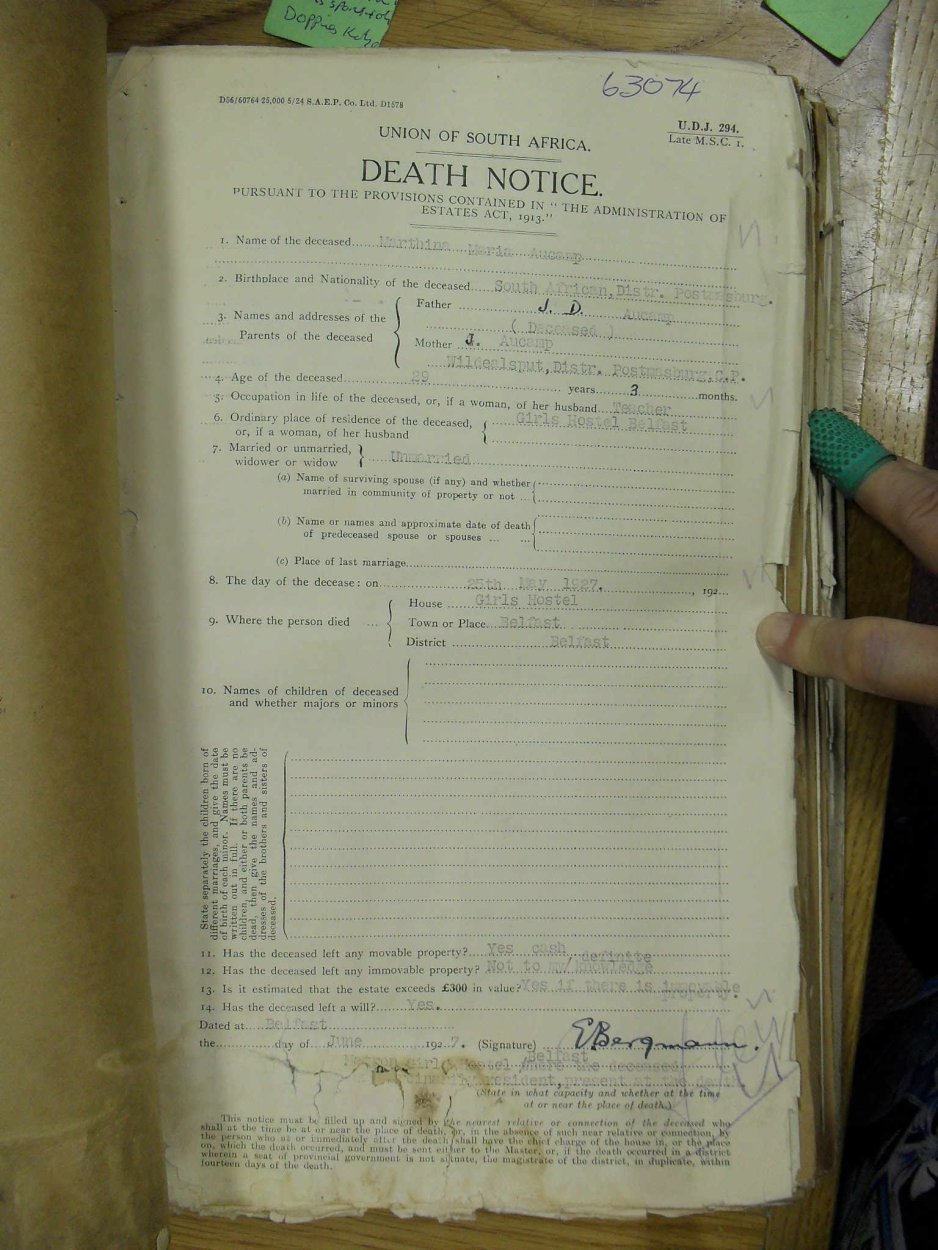 Doppies
63074
D56/60764 25,000 5/24 S.A.E.P. Co. Ltd. D1578
U.D.J. 294.
Late M.S.C. 1.
UNION OF SOUTH AFRICA.
DEATH NOTICE.
PURSUANT TO THE PROVISIONS CONTAINED IN " THE ADMINISTRATION OF
ESTATES ACT, 1913."
1. Name of the deceased Marthina Maria Aucamp
2. Birthplace and Nationality of the deceased South African, Distr. Postmasburg.
3. Names and addresses of the
Parents of the deceased
Father J. D. Aucamp
( Deceased )
Mother J. Aucamp
Wildealsput, Distr. Postmasburg, C.P.
4. Age of the deceased 29 years 3 months.
5. Occupation in life of the deceased, or, if a woman, of her husband Teacher
6. Ordinary place of residence of the deceased, Girls Hostel Belfast
or, if a woman, of her husband
7. Married or unmarried, Unmarried
widower or widow
(a) Name of surviving spouse (if any) and whether
married in community of property or not ...
(b) Name or names and approximate date of death
of predeceased spouse or spouses ... ...
(c) Place of last marriage
8. The day of the decease: on 25th May 1927. , 192
9. Where the person died ...
House Girls Hostel
Town or Place Belfast
District Belfast
10. Names of children of deceased
and whether majors or minors
State separately the children born of
different marriages, and give the date
of birth of each minor. Names must be
written out in full. If there are no
children, and either or both parents be
dead, then give the names and ad-
dresses of the brothers and sisters of
deceased.
11. Has the deceased left any movable property? Yes cash, definite
12. Has the deceased left any immovable property? Not to my knowledge
13. Is it estimated that the estate exceeds £300 in value? Yes if there is immovable
property.
14. Has the deceased left a will? Yes.
Dated at Belfast
the day of June 1927. (Signature) E Bergmann.
Matron Girls Hostel Belfast where the deceased
resident, present at the death
(State in what capacity and whether at the time
at or near the place of death.)
This notice must be filled up and signed by the nearest relative or connection of the deceased who
shall at the time be at or near the place of death, or, in the absence of such near relative or connection, by
the person who at or immediately after the death shall have the chief charge of the house in, or the place
on, which the death occurred, and must be sent either to the Master, or, if the death occurred in a district
wherein a seat of provincial government is not situate, the magistrate of the district, in duplicate, within
fourteen days of the death.